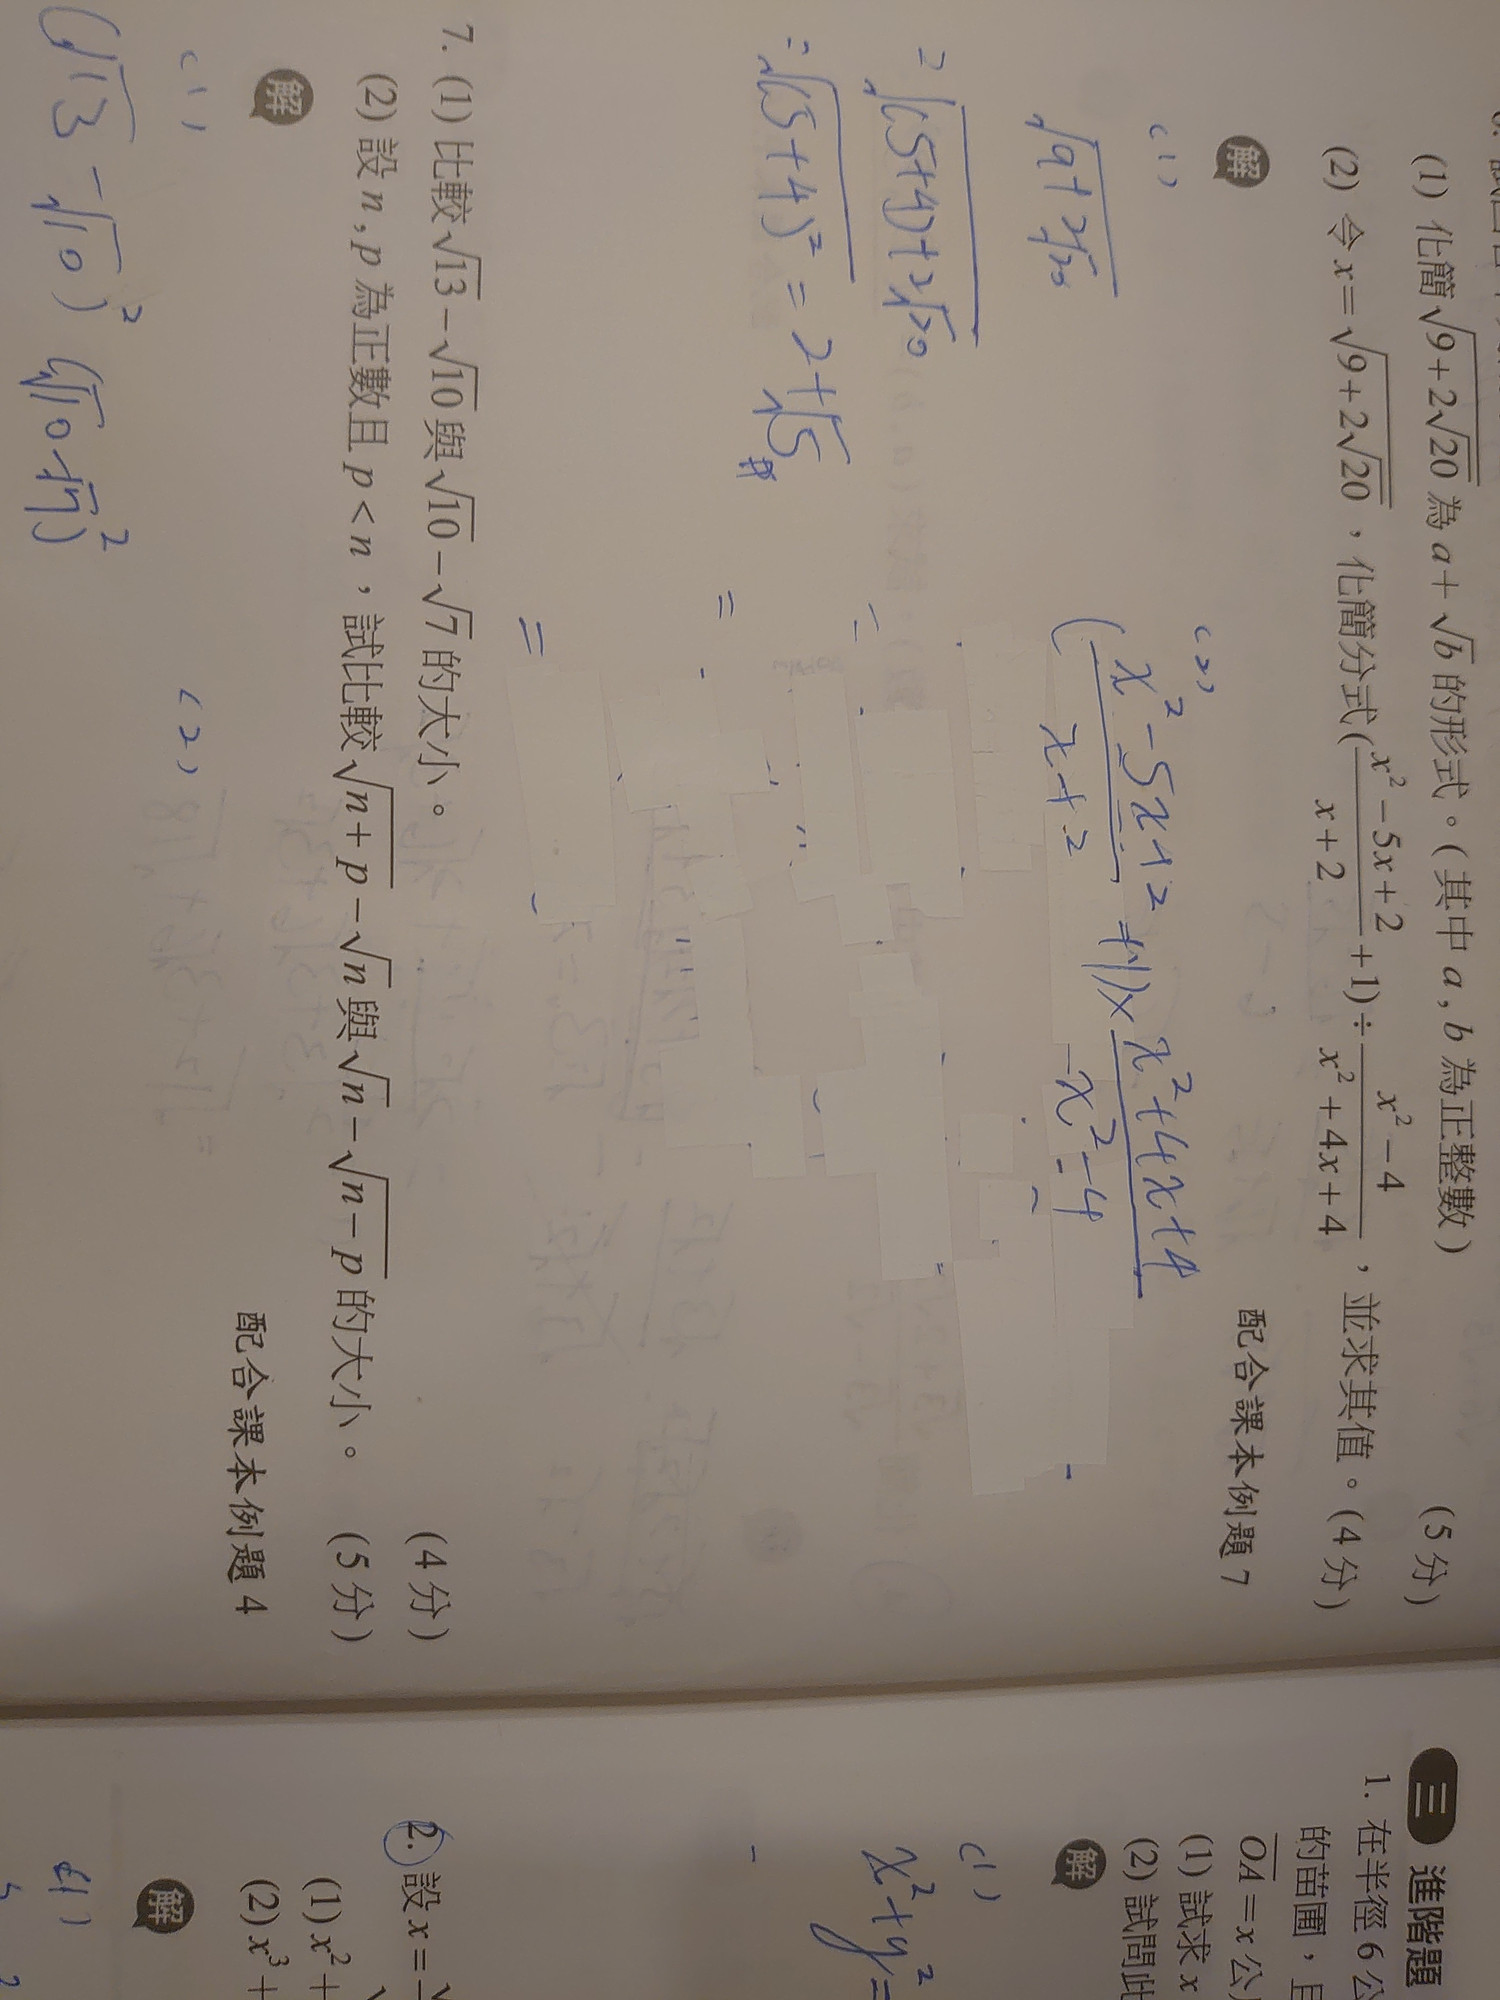 (1) 化簡√(9+2√20) 為 a+√b 的形式。(其中 a, b 為正整數) (5分)
(2) 令 x=√(9+2√20)，化簡分式((x²-5x+2)/(x+2)+1)÷(x²-4)/(x²+4x+4)，並求其值。(4分)
配合課本例題 7
解
(1)
√(9+2√20)
=√((5+4)+2√20)
=√(5+4)² = 2+√5 #
(2)
((x²-5x+2)/(x+2) +1)× (x²+4x+4)/(x²-4)
=
=
=
7. (1) 比較√13-√10與√10-√7的大小。 (4分)
(2) 設 n, p 為正數且 p<n，試比較√(n+p)-√n與√n-√(n-p)的大小。 (5分)
配合課本例題 4
解
(1)
(2)
(√13-√10)² (√10-√7)²
三 進階題
1. 在半徑 6 公
的苗圃，且
OA=x 公
(1) 試求 x
(2) 試問此
解
(1)
x²+y²=
2. 設 x=√
(1) x²+
(2) x³+
解
(1)